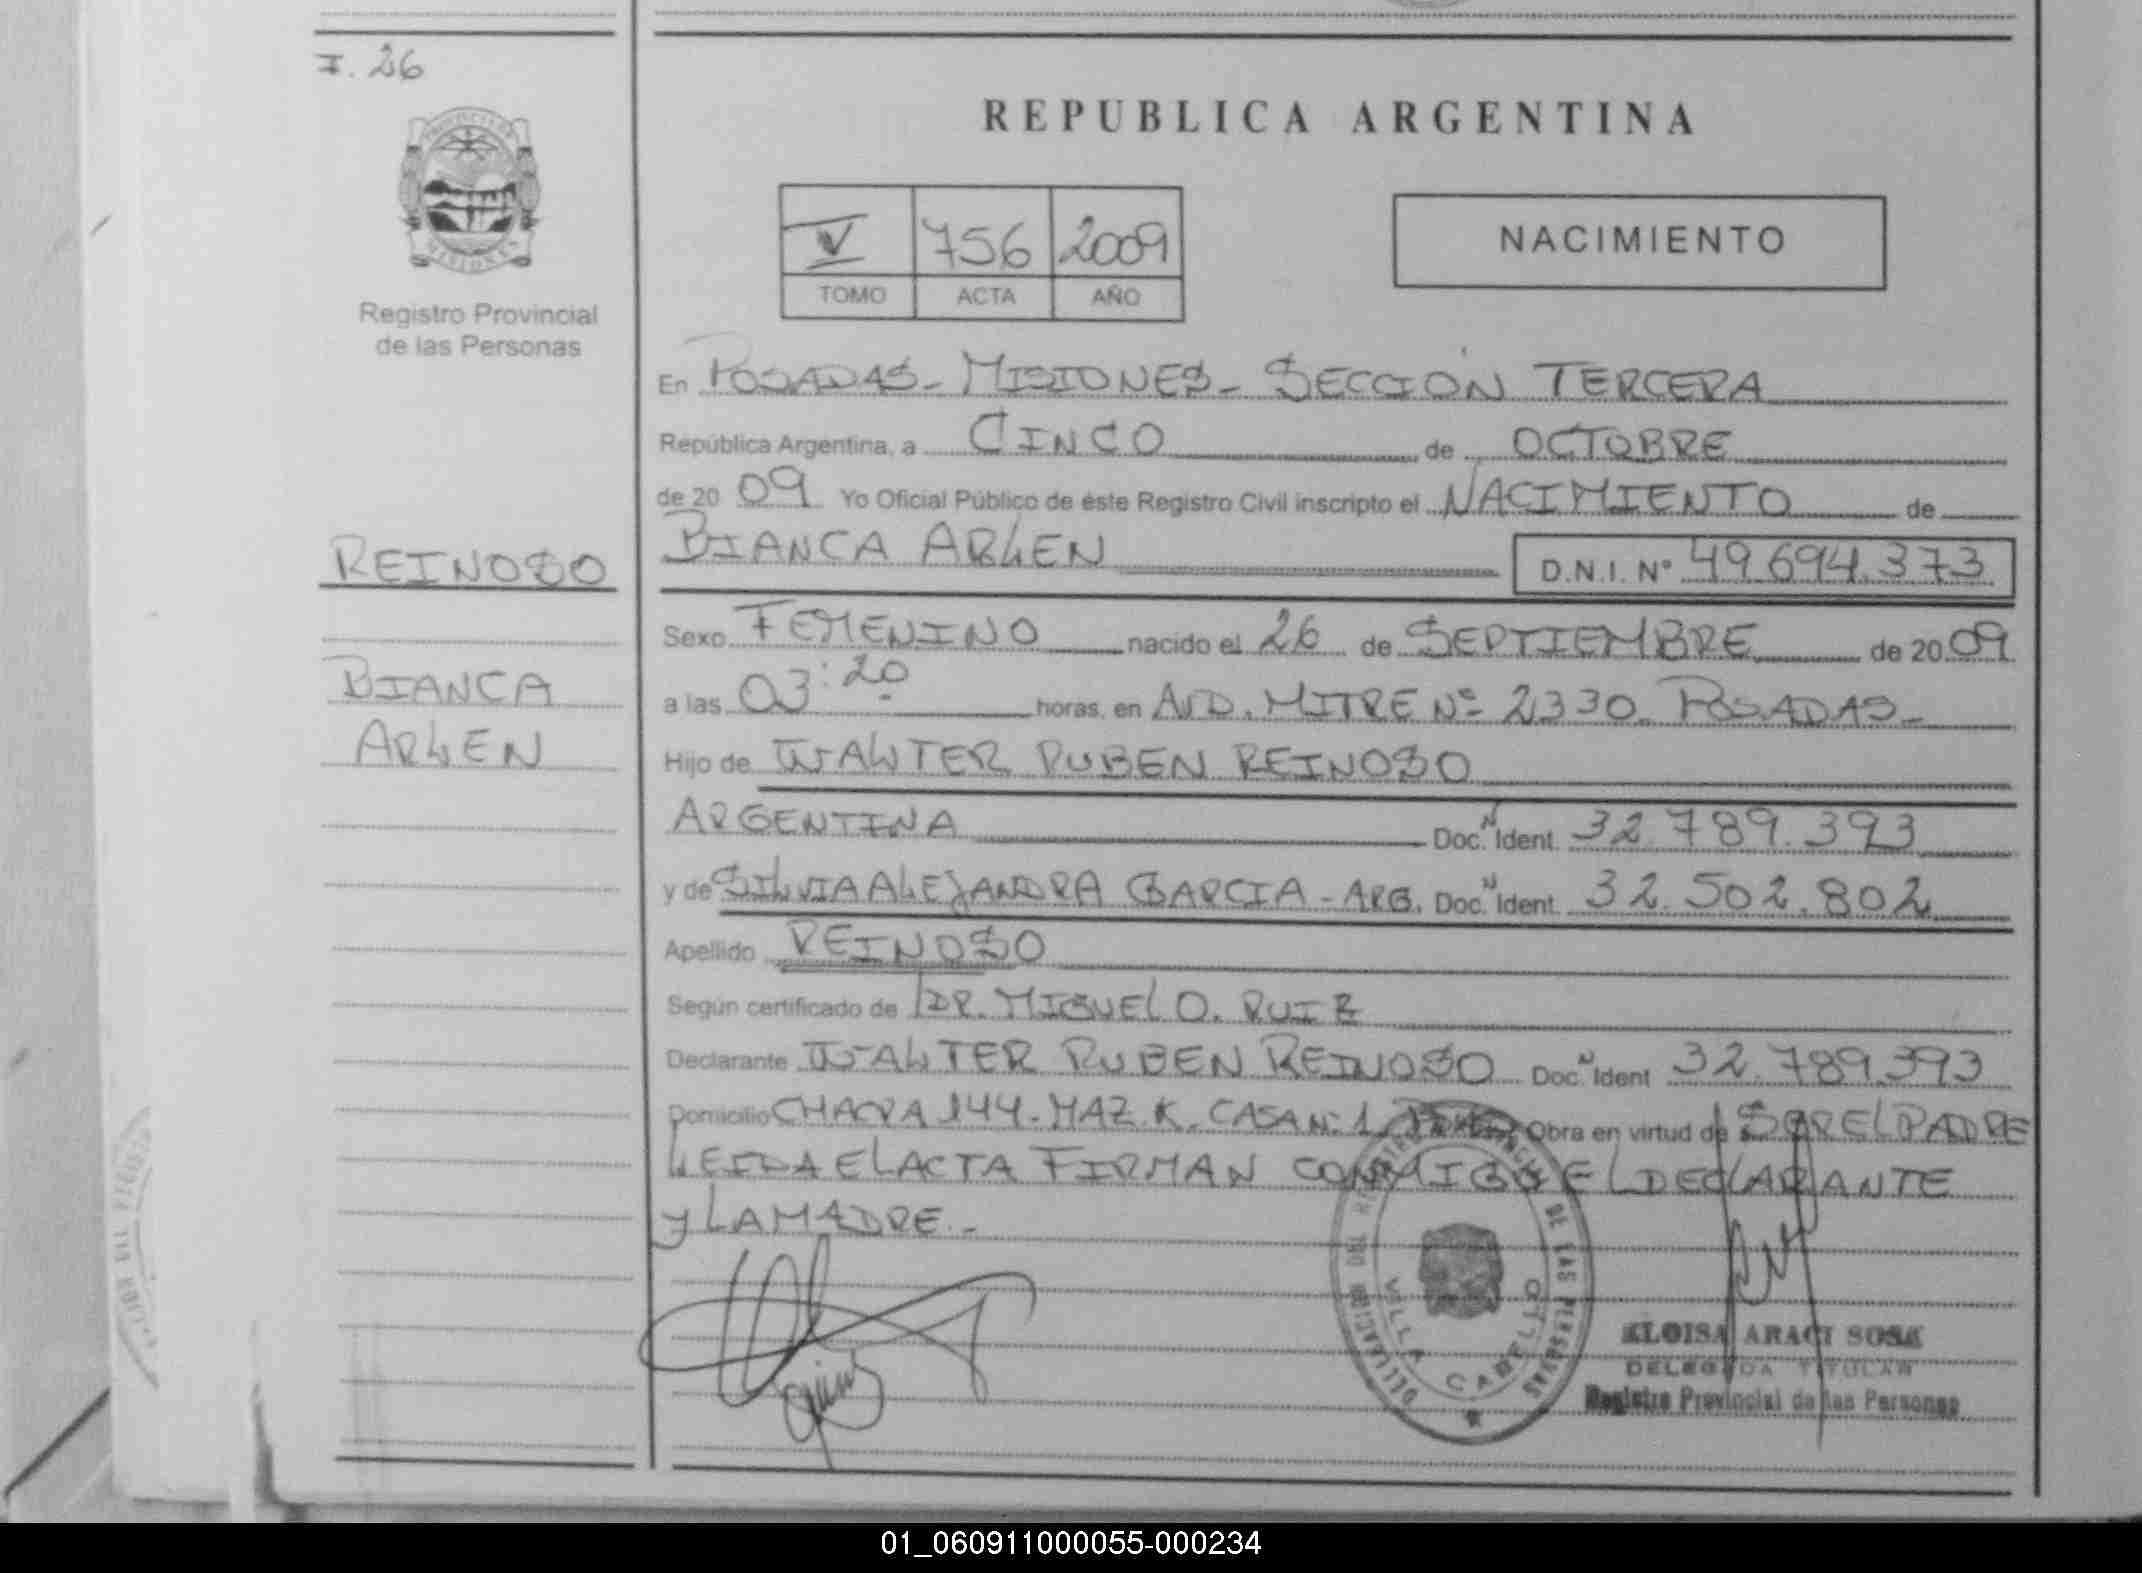 F. 26
Registro Provincial
de las Personas
REINOSO
BIANCA
ARLEN
REPUBLICA ARGENTINA
V 756 2009
TOMO ACTA AÑO
NACIMIENTO
En POSADAS - MISIONES - SECCIÓN TERCERA
República Argentina, a CINCO de OCTUBRE
de 20 09 Yo Oficial Público de éste Registro Civil inscripto el NACIMIENTO de
BIANCA ARLEN D.N.I. Nº 49.694.373
Sexo FEMENINO nacido el 26 de SEPTIEMBRE de 20 09
a las 03:20 horas, en AVD. MITRE Nº 2330. POSADAS -
Hijo de WALTER RUBEN REINOSO
ARGENTINA Doc. N Ident. 32.789.393
y de SILVIA ALEJANDRA GARCIA - ARG. Doc. N Ident. 32.502.802
Apellido REINOSO
Según certificado de DR. MIGUEL O. RUIZ
Declarante WALTER RUBEN REINOSO Doc. N Ident 32.789.393
Domicilio CHACRA 144. MAZ. K. CASA Nº 1, Obra en virtud de SER EL PADRE
LEIDA EL ACTA FIRMAN CONMIGO EL DECLARANTE
Y LA MADRE. -
DELEGACION DEL REGISTRO PROVINCIAL DE LAS PERSONAS
VILLA CABELLO
ELOISA ARACI SOSA
DELEGADA TITULAR
Registro Provincial de las Personas
01_060911000055-000234